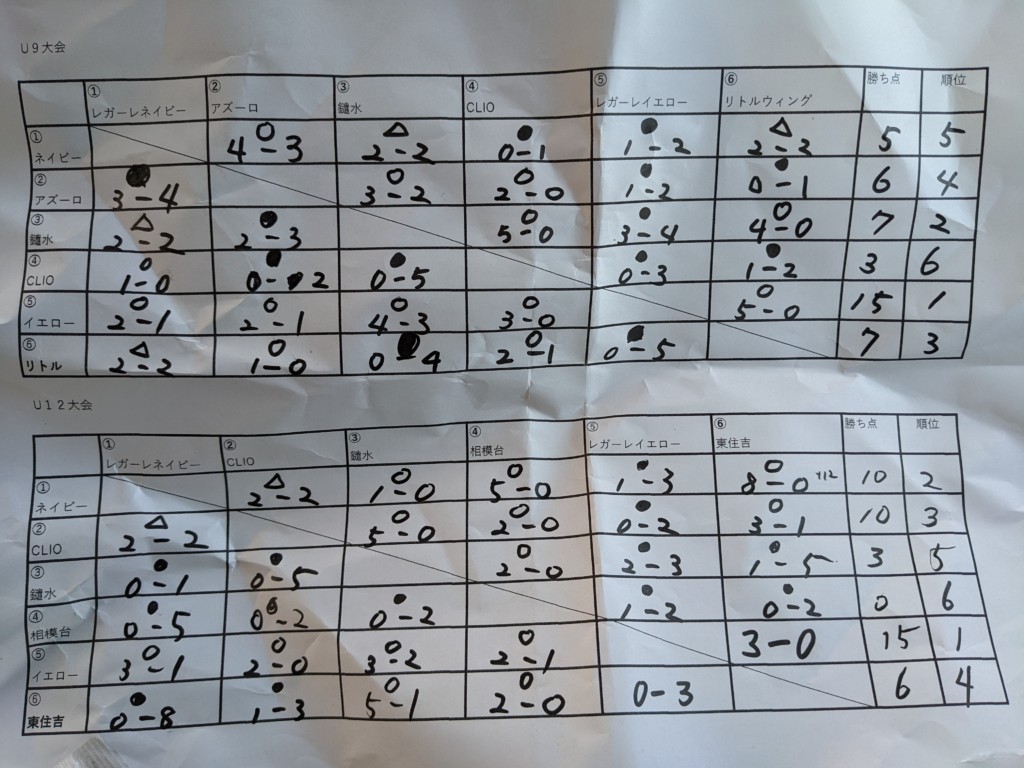 U9大会
① ② ③ ④ ⑤ ⑥ 勝ち点 順位
レガーレネイビー アズーロ 鑓水 CLIO レガーレイエロー リトルウィング
① ○ △ ● ● △
ネイビー 4-3 2-2 0-1 1-2 2-2 5 5
② ● ○ ○ ● ●
アズーロ 3-4 3-2 2-0 1-2 0-1 6 4
③ △ ● ○ ● ○
鑓水 2-2 2-3 5-0 3-4 4-0 7 2
④ ○ ● ● ● ●
CLIO 1-0 0-2 0-5 0-3 1-2 3 6
⑤ ○ ○ ○ ○ ○
イエロー 2-1 2-1 4-3 3-0 5-0 15 1
⑥ △ ○ ● ○ ●
リトル 2-2 1-0 0-4 2-1 0-5 7 3
U12大会
① ② ③ ④ ⑤ ⑥ 勝ち点 順位
レガーレネイビー CLIO 鑓水 相模台 レガーレイエロー 東住吉
① △ ○ ○ ● ○
ネイビー 2-2 1-0 5-0 1-3 8-0 +12 10 2
② △ ○ ○ ● ○
CLIO 2-2 5-0 2-0 0-2 3-1 10 3
③ ● ● ○ ● ●
鑓水 0-1 0-5 2-0 2-3 1-5 3 5
④ ● ● ● ● ●
相模台 0-5 0-2 0-2 1-2 0-2 0 6
⑤ ○ ○ ○ ○
イエロー 3-1 2-0 3-2 2-1 3-0 15 1
⑥ ● ● ○ ○
東住吉 0-8 1-3 5-1 2-0 0-3 6 4